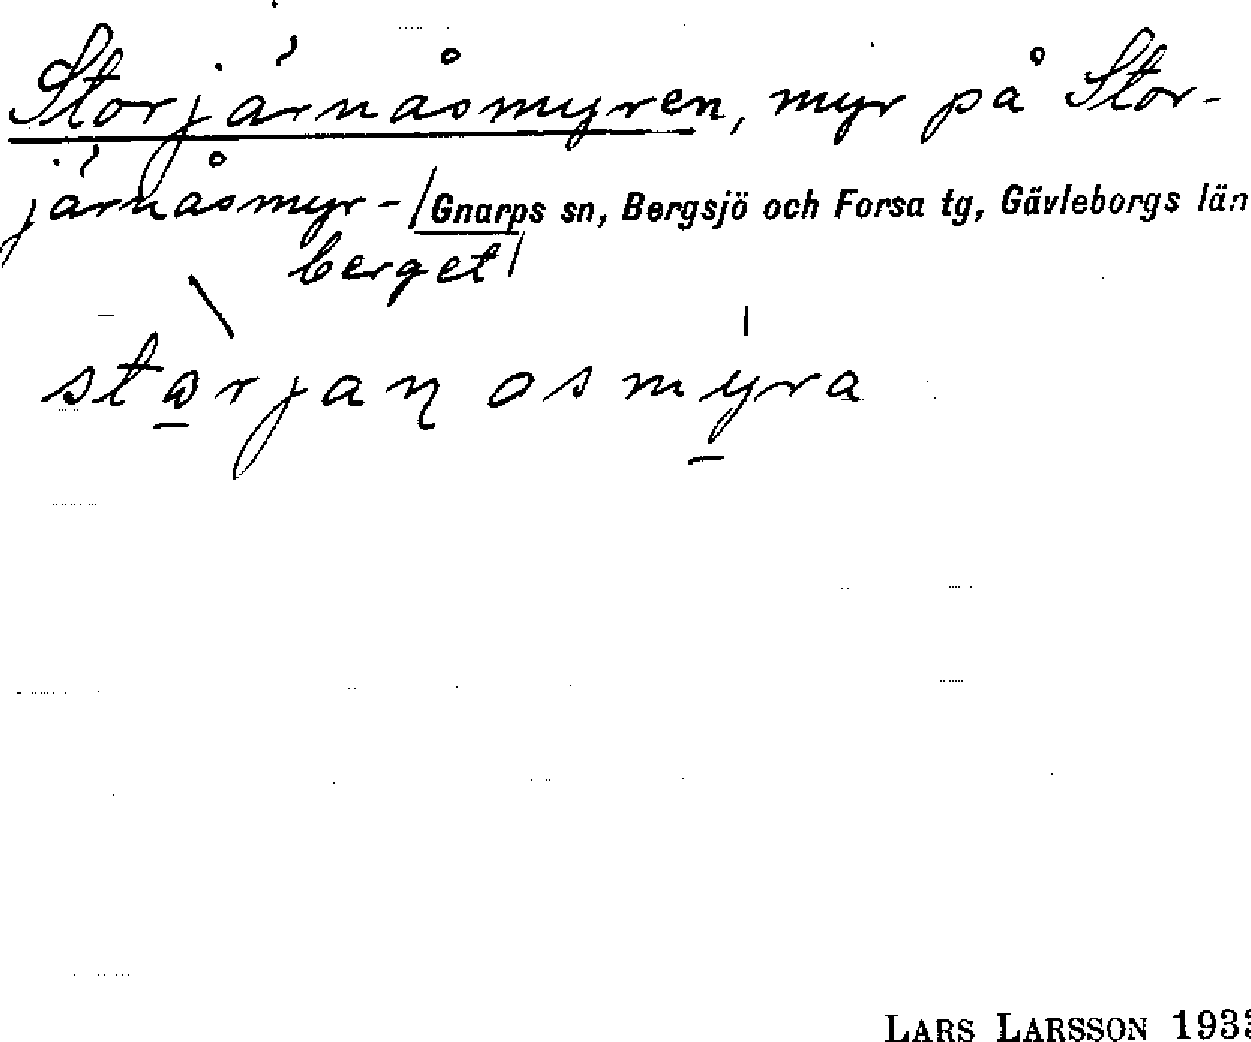 Storjärnåsmyren, myr på Stor-
järnåsmyr-/Gnarps sn, Bergsjö och Forsa tg, Gävleborgs län
berget/
starjan osmyra
LARS LARSSON